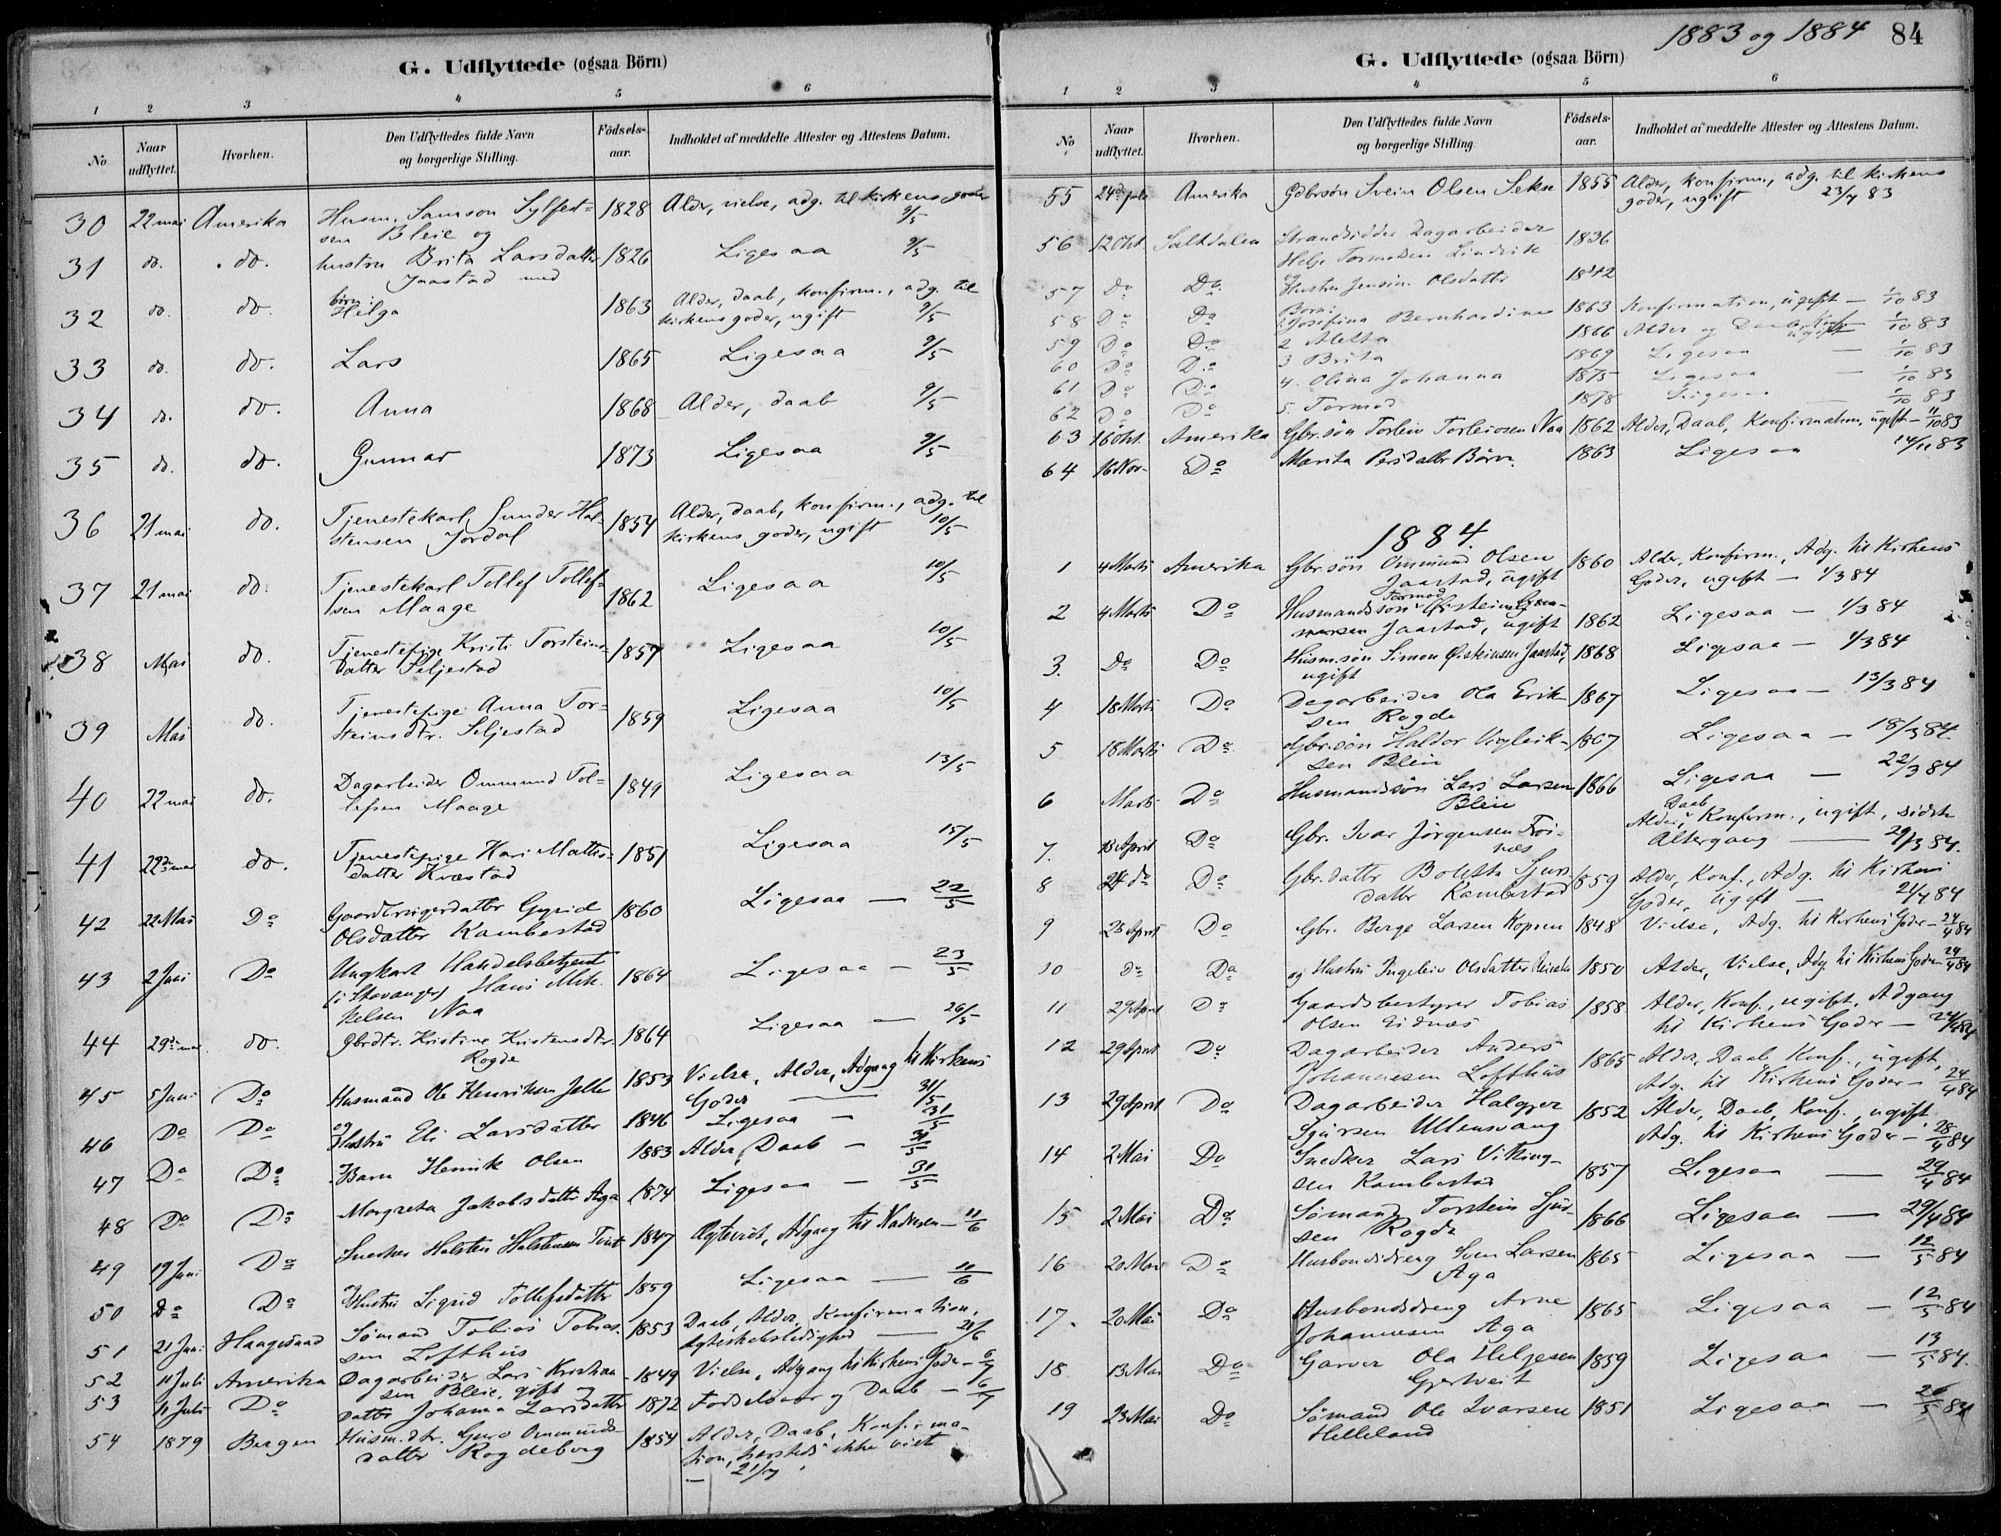 1883 og 1884 84
G. Udflyttede (ogsaa Börn)
1 2 3 4 5 6
No Naar udflyttet. Hvorhen. Den Udflyttedes fulde Navn og borgerlige Stilling. Födsels-aar. Indholdet af meddelte Attester og Attestens Datum.
30 22 mai Amerika Husm. Samson Sylfest- 1828 Alder, vielse, adg. til kirkens goder
sen Bleie og 9/5
31 do. do. hustru Brita Larsdatter 1826 Ligesaa 9/5
Jaastad med
32 do. do. børn: Helga 1863 Alder, daab, konfirm., adg. til
kirkens goder, ugift 9/5
33 do. do. Lars 1865 Ligesaa 9/5
34 do. do. Anna 1868 Alder, daab 9/5
35 do. do. Gunnar 1873 Ligesaa 9/5
36 21 mai do. Tjenestekarl Gunder Hal- 1854 Alder, daab, konfirm., adg. til
stensen Jordal kirkens goder, ugift 10/5
37 21 mai do. Tjenestekarl Tollef Tollef- 1862 Ligesaa 10/5
sen Maage
38 Mai do. Tjenestepige Kristi Torsteins- 1857 Ligesaa 10/5
datter Seljestad
39 Mai do. Tjenestepige Anna Tor- 1859 Ligesaa 10/5
steinsdtr. Seljestad
40 22 mai do. Dagarbeider Ommund Tol- 1849 Ligesaa 13/5
lefsen Maage
41 do. Tjenestepige Kari Mattis- 1851 Ligesaa 15/5
datter
42 22 Mai Do Gaardbrugerdatter Gyrid 1860 Ligesaa — 22/5
Olsdatter Kambestad
43 2 Juni Do Ungkarl Handelsbetjent 1864 Ligesaa — 23/5
(i Stavanger) Hans Mik-
kelsen Naa
44 29de mai do. Gbrdtr. Kristine Kristensdtr. 1864 Ligesaa — 26/5
Rogde
45 5 Juni Do Husmand Ole Henriksen Jelle 1853 Vielse, Alder, Adgang til Kirkens
og Goder — 31/5
46 Do Do Hustru Eli Larsdatter 1846 Ligesaa — 31/5
47 Do Do Barn Henrik Olsen 1883 Alder, Daab — 31/5
48 Do Do Margreta Jakobsdatter Aga 1874 Ligesaa — 31/5
49 19 Juni Do Snedker Halsten Halstensen 1847 Adgang til Nadveren — 11/6
50 Do Do Hustru Sigrid Tollefsdatter 1859 Ligesaa — 11/6
51 21 Juni Haugesund Sömand Tobias Tobias- 1853 Daab, Alder, Konfirmation,
sen Lofthus Ægteskabsledighed — 21/6
52 11 Juli Amerika Dagarbeider Lars Kristian- 1849 Vielse, Adgang til Kirkens Goder — 6/7
sen Bleie, gift og
53 11 Juli Do datter Johanna Larsdatter 1872 Fødselsaar og Daab — 6/7
54 1879 Bergen Husm.dtr. Guro Ommunds- 1854 Alder, Daab, Konfirma-
datter Rogdeberg tion, ikke vist
— 21/7
G. Udflyttede (ogsaa Börn)
1 2 3 4 5 6
No Naar udflyttet. Hvorhen. Den Udflyttedes fulde Navn og borgerlige Stilling. Födsels-aar. Indholdet af meddelte Attester og Attestens Datum.
55 24de juli Amerika Gdbrsøn Svein Olsen Sekse 1855 Alder, konfirm., adg. til kirkens
goder, ugift 23/7 83
56 12 Okt. Saltdalen Strandsidder Dagarbeider 1836
Helje Tormodsen
og
57 Do Do Hustru Olsdatter 1842
Børn:
58 Do Do 1 Josefina Bernhardine 1863 Konfirmation, ugift — 1/10 83
59 Do Do 2 Aletta 1866 Alder og Daab, Konf. ugift — 1/10 83
60 Do Do 3 Brita 1869 Ligesaa — 1/10 83
61 Do Do 4. Olina Johanna 1875 Ligesaa — 1/10 83
62 Do Do 5. Tormod 1878 Ligesaa — 1/10 83
63 16 Okt. Amerika Gbr.søn Torleiv Torleivsen Naa 1862 Alder, Daab, Konfirmation, ugift — 11/10 83
64 16 Nov. Do Marita Persdatter Børve 1863 Ligesaa 14/11 83
1884.
1 4 Marts Amerika Gbr.søn Ommund Olsen 1860 Alder, Konfirm., Adg. til Kirkens
Jaastad, ugift Goder, ugift — 1/3 84
2 4 Marts Do Husmandssøn Tormod 1862 Ligesaa — 1/3 84
Jaastad, ugift
3. Do Do Husm.søn Simon Østeinsen Jaastad, 1868 Ligesaa — 1/3 84
ugift
4 18 Marts Do Dagarbeider Ola Erik- 1867 Ligesaa — 13/3 84
sen Rogde
5 18 Marts Do Gbr.søn Haldor Vigleik- 1867 Ligesaa — 18/3 84
sen Bleie
6 Marts Do Husmandssøn Lars Larsen 1866 Ligesaa — 22/3 84
Bleie
7. 18 April Do Gbr. Ivar Jørgensen Frøi- Alder, Daab, Konfirm., ugift, sidste
næs Altergang — 29/3 84.
8 24 do Do Gbr.datter Boletta Sjurs- 1859 Alder, Konf., Adg. til Kirkens
datter Kambestad Goder, ugift — 21/4 84
9 28 April Do Gbr. Berge Larsen Kopren 1848 Vielse, Adg. til Kirkens Goder — 24/4 84
10 do Do og Hustru Ingeleiv Olsdatter 1850 Alder, Vielse, Adg. til Kirkens Goder — 24/4 84
11 29 April Do Gaardsbestyrer Tobias 1858 Alder, Konf., ugift, Adgang
Olsen Eidnæs til Kirkens Goder — 24/4 84
12 29 April Do Dagarbeider Anders 1865 Alder, Daab, Konf., ugift,
Johannesen Lofthus Adg. til Kirkens Goder — 24/4 84
13 29 April Do Dagarbeider Halgjer 1852 Alder, Daab, Konf., ugift,
Sjursen Ullensvang Adg. til Kirkens Goder — 28/4 84
14 2 Mai Do Snedker Lars Viking- 1857 Ligesaa — 29/4 84
sen Kambestad
15 2 Mai Do Sømand Torstein Sjur- 1866 Ligesaa — 29/4 84
sen Rogde
16 20 Mai Do Husbondsdreng Sven Larsen 1865 Ligesaa — 12/5 84
Aga
17. 20 Mai Do Husbondsdreng Arne 1865 Ligesaa — 12/5 84
Johannesen Aga
18 13 Mai Do Garver Ola Helgesen 1859 Ligesaa — 13/5 84.
Gjertveit
19 23 Mai Do Sømand Ole Ivarsen 1851 Ligesaa — 20/5 84
Helleland